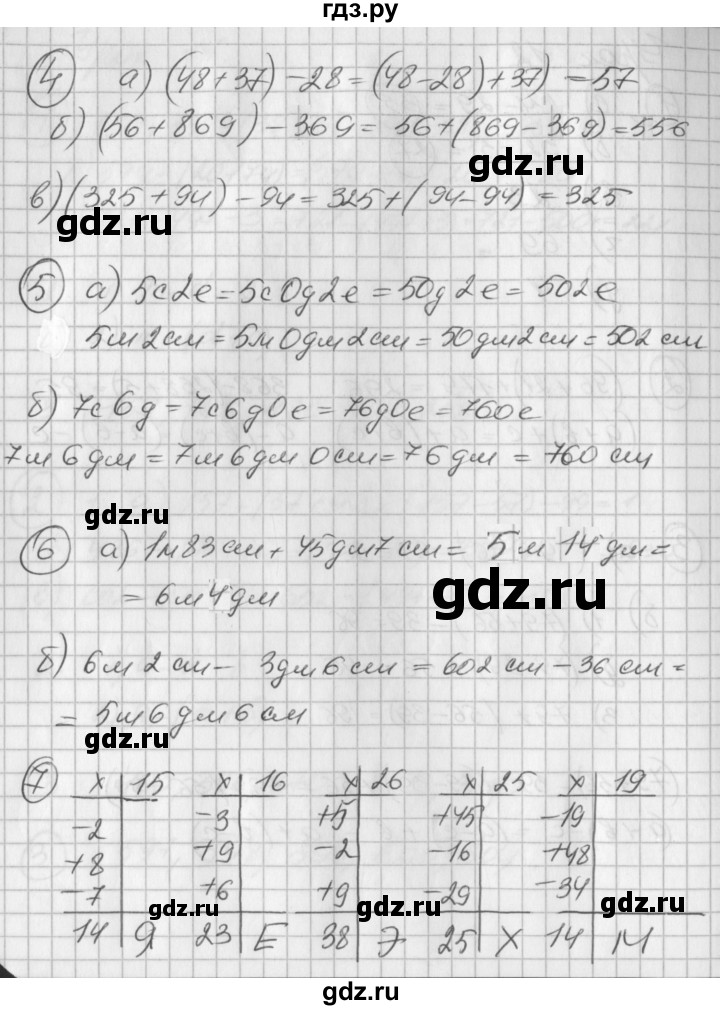 гдз.ру
4 а) (48+37) -28 = (48-28)+37) = 57
б) (56+869) - 369 = 56+(869-369) = 556
gdz.ru
в) (325+94) - 94 = 325+(94-94) = 325
gdz.ru
5 а) 5с2е = 5с0д2е = 50д2е = 502е
5м2см = 5м0дм2см = 50дм2см = 502см
б) 7с6д = 7с6д0е = 76д0е = 760е
7м6дм = 7м6дм0см = 76дм = 760см
gdz.ru
6 а) 1м83см + 45дм7см = 5м14дм =
= 6м4дм
gdz.ru
б) 6м2см - 3дм6см = 602см - 36см =
= 5м6дм6см
gdz.ru
7 x 15 x 16 x 26 x 25 x 19
-2 -3 +5 +45 -19
+8 +9 -2 -16 +48
-7 +6 +9 -29 -34
gdz.ru gdz.ru gdz.ru
14 Я 23 Е 38 Э 25 Х 14 М
gdz.ru